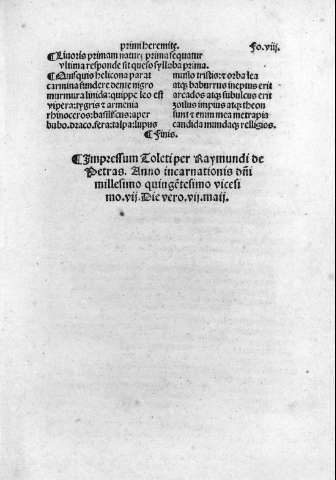 primi heremite. Fo. viij.
¶ Liuoris primam naturę prima sequatur
vltima responde sit queso syllaba prima.
¶ Quisquis helicona parat
carmina fundere dente nigro
murmura liuida: quippe leo est
vipera: tygris & armenia
rhinoceros: basiliscus: aper
bubo. draco. fera: talpa: lupus
musso tristis: & orba lea
atq; baburrus ineptus erit
arcados atq; subulcus erit
zoilus impius atq; theon
sunt & enim mea metrapia
candida mundaq; relligios.
¶ Finis.
¶ Impressum Toleti per Raymundi de
Petras. Anno incarnationis dn̄i
millesimo quingētesimo vicesi
mo. vij. Die vero. vij. maij.